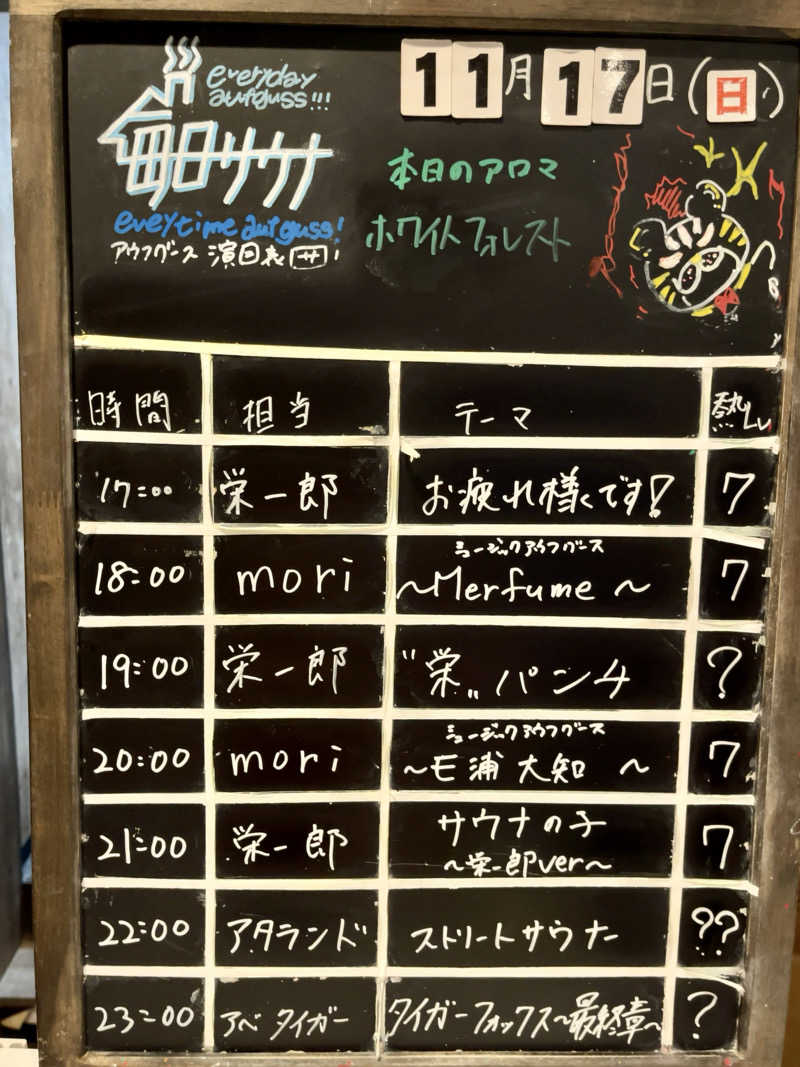 everyday
aufguss!!!
11月17日(日)
毎日サウナ
本日のアロマ
everytime aufguss!
ホワイトフォレスト
アウフグース 演目表 サ!
時間 担当 テーマ 熱Lv
17:00 栄一郎 お疲れ様です! 7
ミュージックアウフグース
18:00 mori ～Merfume～ 7
19:00 栄一郎 "栄" パンチ ?
ミュージックアウフグース
20:00 mori ～モ浦大知～ 7
21:00 栄一郎 サウナの子 7
～栄一郎ver～
22:00 アタランド ストリートサウナー ??
23:00 アベタイガー タイガーフォックス～最終章～ ?